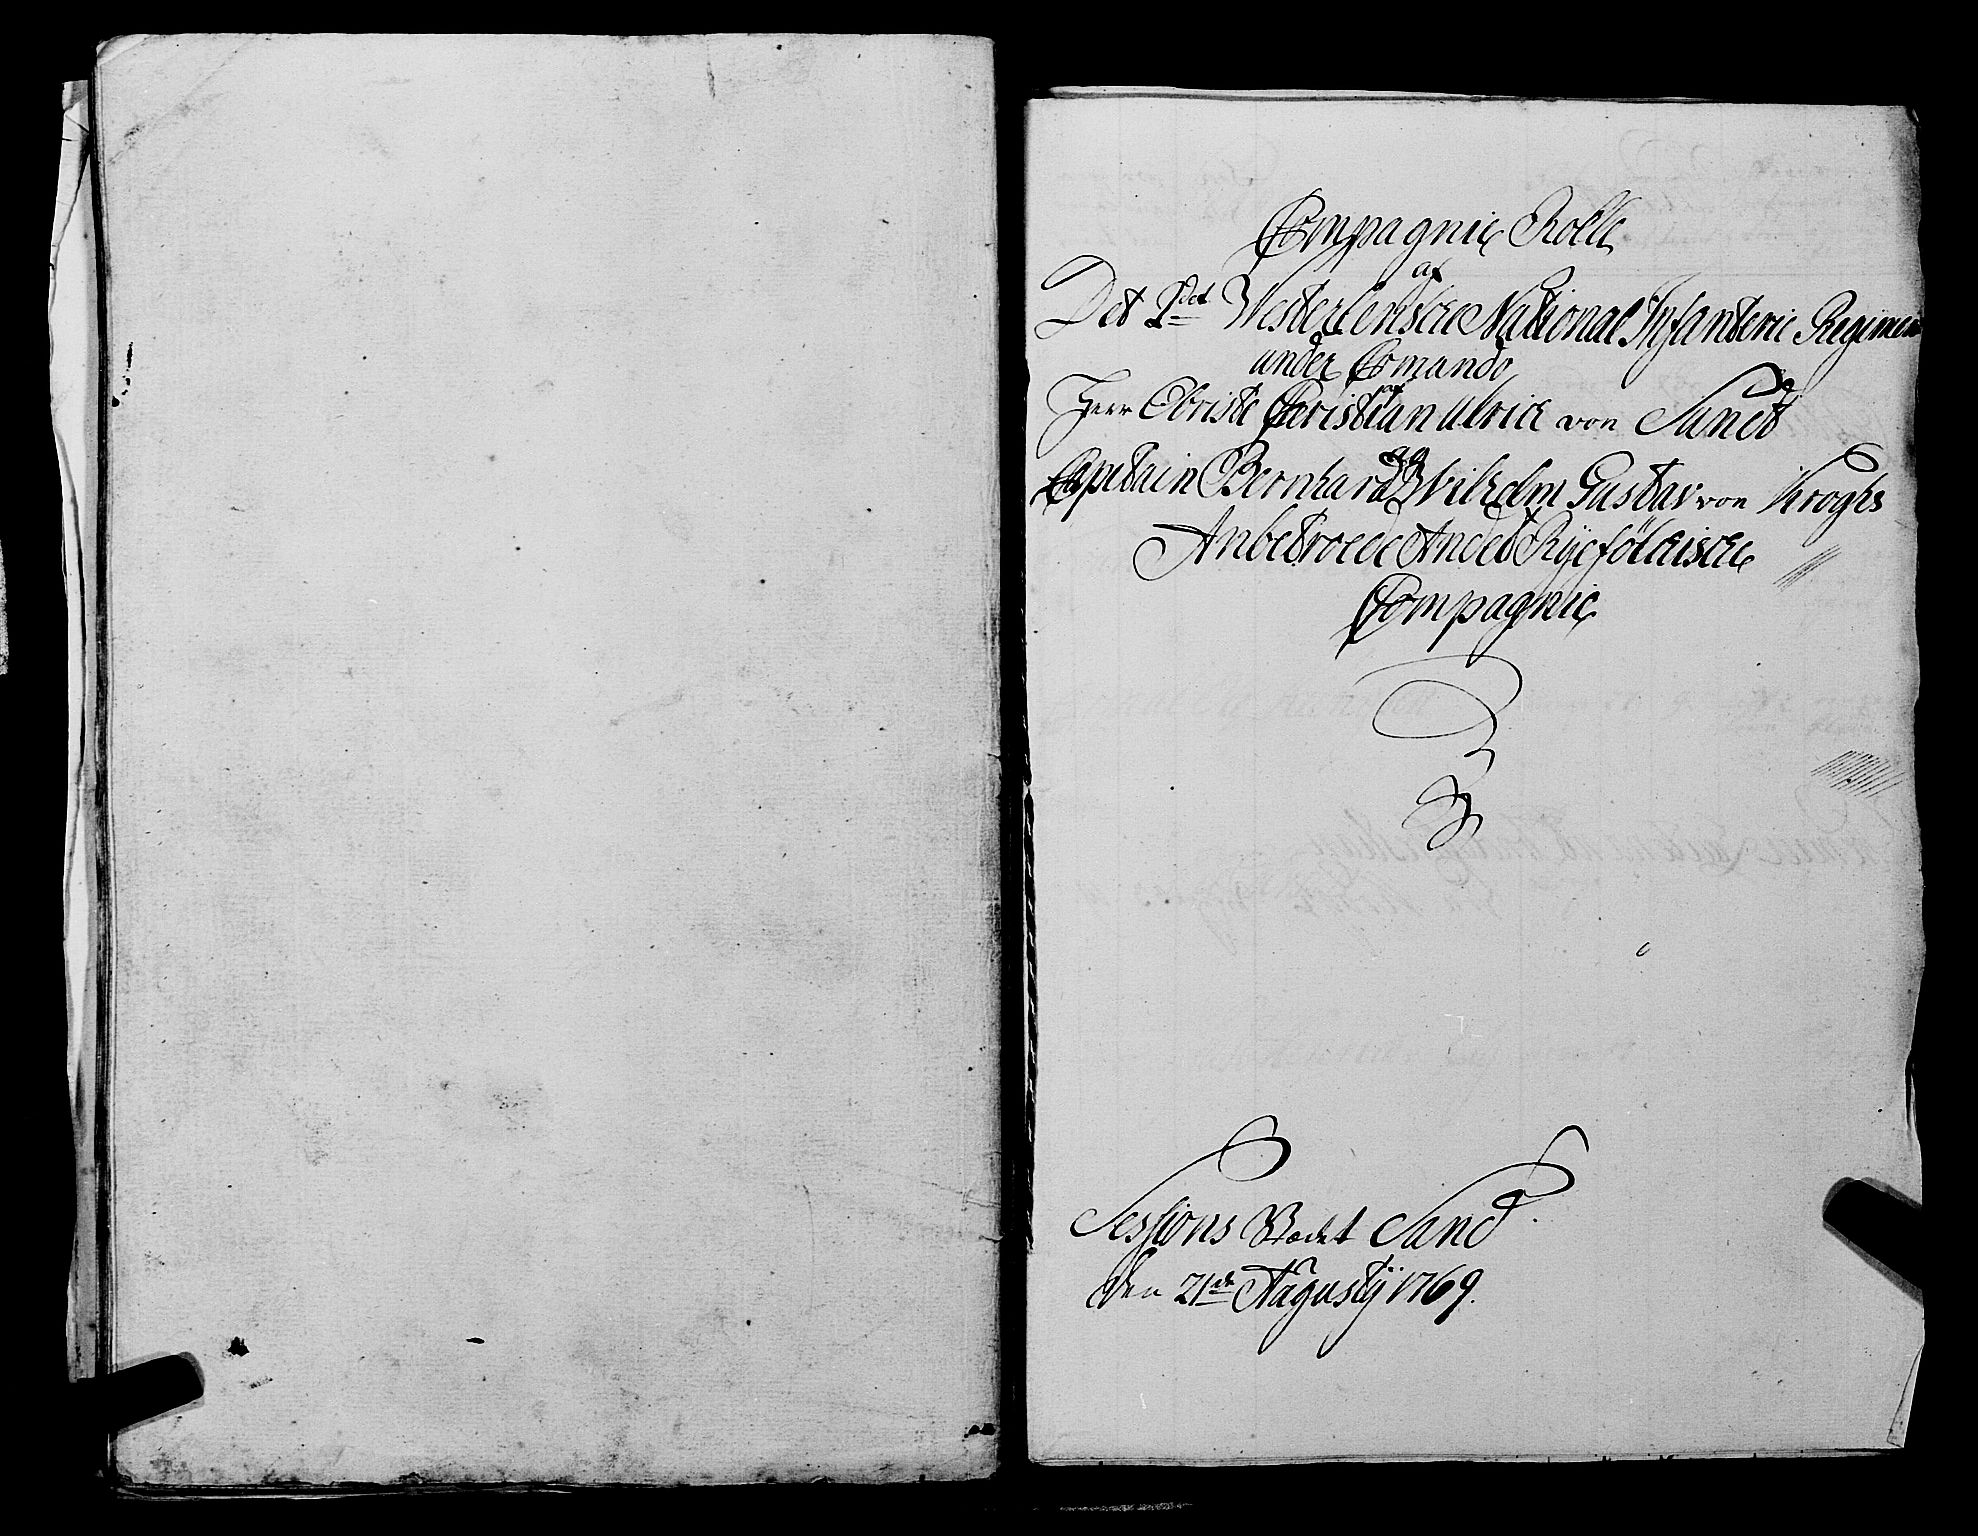 Compagnie Rolle
af
Det 2det Westerlenske National Infanterie Regiment
under Comando
af
Herr Obriste Christian Ulrick von Sandt
og
Capitain Bernhard Wilhelm Gustav von Kroghs
Anbetroede Andet Ryefölckiscke
Compagnie
Sessions Stædet Sand
den 21de Augustij 1769.